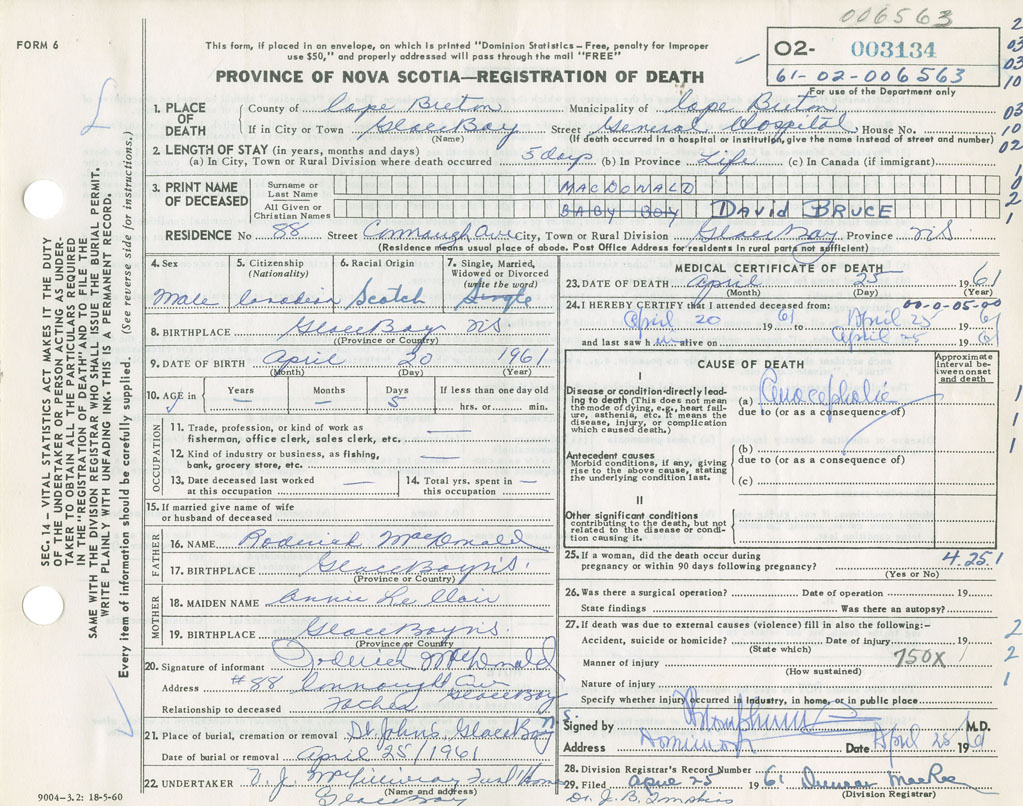 006563
FORM 6
This form, if placed in an envelope, on which is printed "Dominion Statistics – Free, penalty for improper
use $50," and properly addressed will pass through the mail "FREE"
O2- 003134
61-02-006563
For use of the Department only
PROVINCE OF NOVA SCOTIA—REGISTRATION OF DEATH
1. PLACE OF DEATH
County of Cape Breton Municipality of Cape Breton
If in City or Town Glace Bay Street General Hospital House No.
(Name) (If death occurred in a hospital or institution, give the name instead of street and number)
2. LENGTH OF STAY (in years, months and days)
(a) In City, Town or Rural Division where death occurred 5 days (b) in Province Life (c) in Canada (if immigrant)
3. PRINT NAME OF DECEASED
Surname or Last Name MACDONALD
All Given or Christian Names BABY BOY DAVID BRUCE
RESIDENCE No 88 Street Connaugh Ave City, Town or Rural Division Glace Bay Province N.S.
(Residence means usual place of abode. Post Office Address for residents in rural parts not sufficient)
4. Sex
Male
5. Citizenship
(Nationality)
Canadian
6. Racial Origin
Scotch
7. Single, Married, Widowed or Divorced
(write the word)
Single
8. BIRTHPLACE Glace Bay N.S.
(Province or Country)
9. DATE OF BIRTH April 20 1961
(Month) (Day) (Year)
10. AGE in Years — Months — Days 5 If less than one day old
hrs. or min.
OCCUPATION
11. Trade, profession, or kind of work as
fisherman, office clerk, sales clerk, etc. —
12. Kind of industry or business, as fishing,
bank, grocery store, etc. —
13. Date deceased last worked
at this occupation —
14. Total yrs. spent in
this occupation —
15. If married give name of wife
or husband of deceased
FATHER
16. NAME Roderick MacDonald
17. BIRTHPLACE Glace Bay N.S.
(Province or Country)
MOTHER
18. MAIDEN NAME Annie
19. BIRTHPLACE Glace Bay N.S.
(Province or Country)
20. Signature of informant Roderick MacDonald
Address #88 Connaught Ave Glace Bay
Relationship to deceased Father
21. Place of burial, cremation or removal St. Johns Glace Bay
Date of burial or removal April 25/1961
22. UNDERTAKER
(Name and address)
Glace Bay
9004-3.2: 18-5-60
MEDICAL CERTIFICATE OF DEATH
23. DATE OF DEATH April 25 1961
(Month) (Day) (Year)
24. I HEREBY CERTIFY that I attended deceased from: 00-0-05-00
April 20 1961 to April 25 61
and last saw h im alive on April 25 1961
CAUSE OF DEATH
Approximate interval between onset and death
I
Disease or condition directly leading
to death (This does not mean
the mode of dying, e.g., heart failure,
asthenia, etc. It means the
disease, injury, or complication
which caused death.)
(a)
due to (or as a consequence of)
Antecedent causes
Morbid conditions, if any, giving
rise to the above cause, stating
the underlying condition last.
(b)
due to (or as a consequence of)
(c)
II
Other significant conditions
contributing to the death, but not
related to the disease or condition
causing it.
25. If a woman, did the death occur during
pregnancy or within 90 days following pregnancy? 4.25.1
(Yes or No)
26. Was there a surgical operation? Date of operation 19
State findings Was there an autopsy?
27. If death was due to external causes (violence) fill in also the following:-
Accident, suicide or homicide? Date of injury 19
(State which)
Manner of injury 750X
(How sustained)
Nature of injury
Specify whether injury occurred in industry, in home, or in public place
Signed by M.D.
Address Dominion Date April 25 1961
28. Division Registrar's Record Number
29. Filed April 25 1961
(Division Registrar)
SEC. 14 – VITAL STATISTICS ACT MAKES IT THE DUTY
OF THE UNDERTAKER OR PERSON ACTING AS UNDERTAKER
TO OBTAIN ALL THE PARTICULARS REQUIRED
IN THE "REGISTRATION OF DEATH" AND TO FILE THE
SAME WITH THE DIVISION REGISTRAR WHO SHALL ISSUE THE BURIAL PERMIT.
WRITE PLAINLY WITH UNFADING INK. THIS IS A PERMANENT RECORD.
Every item of information should be carefully supplied. (See reverse side for instructions.)
2
03
03
10
03
10
02
1
0
2
1
1
1
1
2
2
1